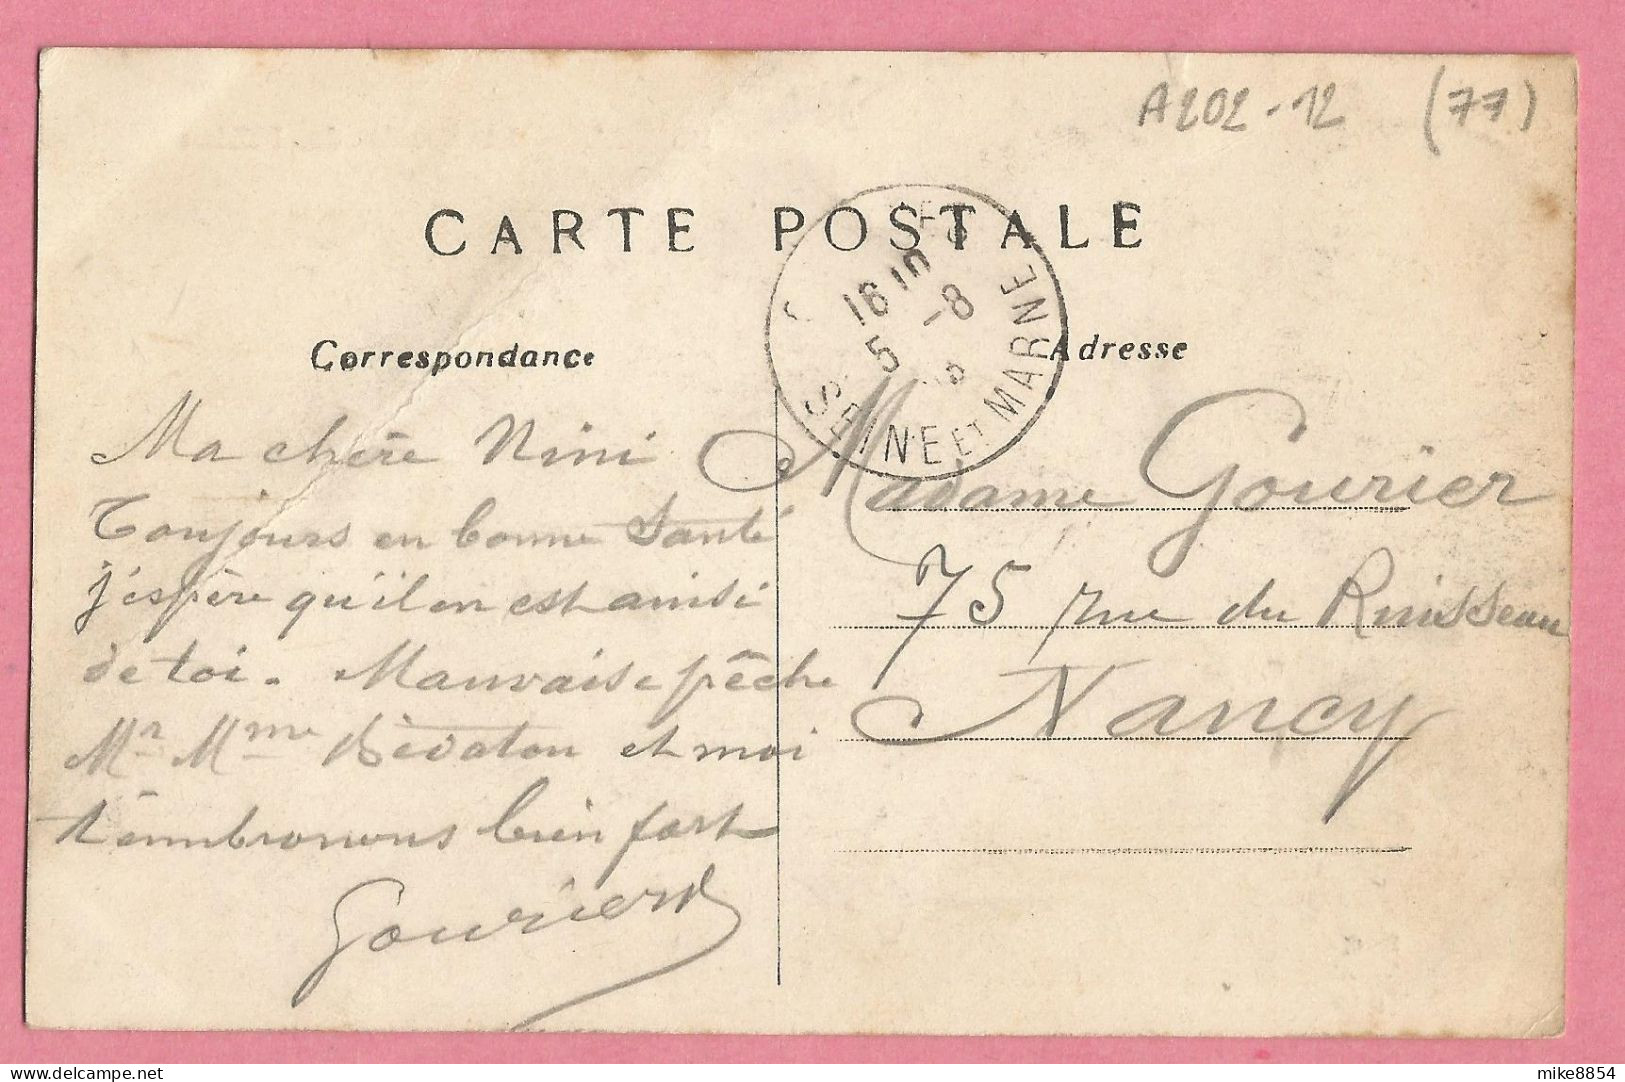 A202-12 (77)
CARTE POSTALE
16 10
5 -8
SEINE ET MARNE
Correspondance
Adresse
Ma chère Nini
Toujours en bonne Santé
j'espère qu'il en est ainsi
de toi. Mauvaise pêche
Mr Mme et moi
t'embrassons bien fort
Gourier
Madame Gourier
75 rue du Ruisseau
Nancy
mike8854